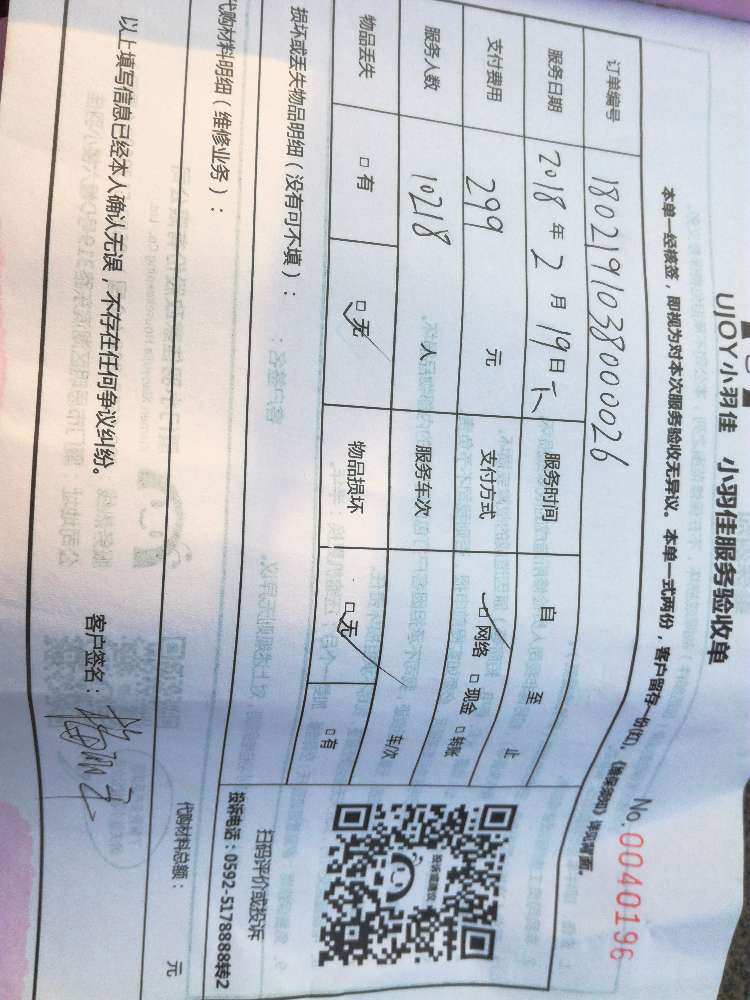 UJOY小羽佳 小羽佳服务验收单
No.0040196
本单一经核签，即视为对本次服务验收无异议。本单一式两份，客户留存一份(红)，
订单编号 18021910380000026
服务日期 2018年2月19日 服务时间 自 至 止
支付费用 299 元 支付方式 □网络 □现金 □转账
服务人数 10218 人 服务车次 车次
物品丢失 □有 □无 物品损坏 □无 □有
损坏或丢失物品明细（没有可不填）：
扫码评价或投诉
投诉电话：0592-5178888转2
代购材料明细（维修业务）：
代购材料总额： 元
以上填写信息已经本人确认无误，不存在任何争议纠纷。 客户签名：